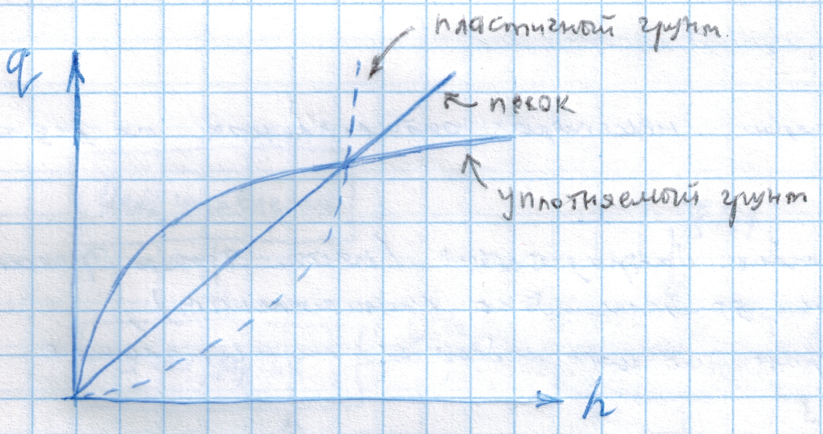 пластичный грунт.
q
песок
уплотняемый грунт
h